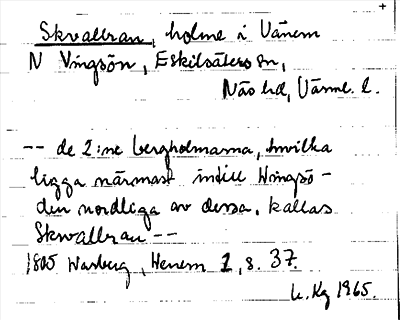 Skvallran, holme i Vänern
N Vingsön, Eskilsäters sn,
Näs hd, Värml. l.
-- de 2:ne bergholmarna, hvilka
ligga närmast intill Wingsö -
den nordliga av dessa, kallas
Skvallran --
1805 Warberg, Wenern 1, s. 37.
1965.